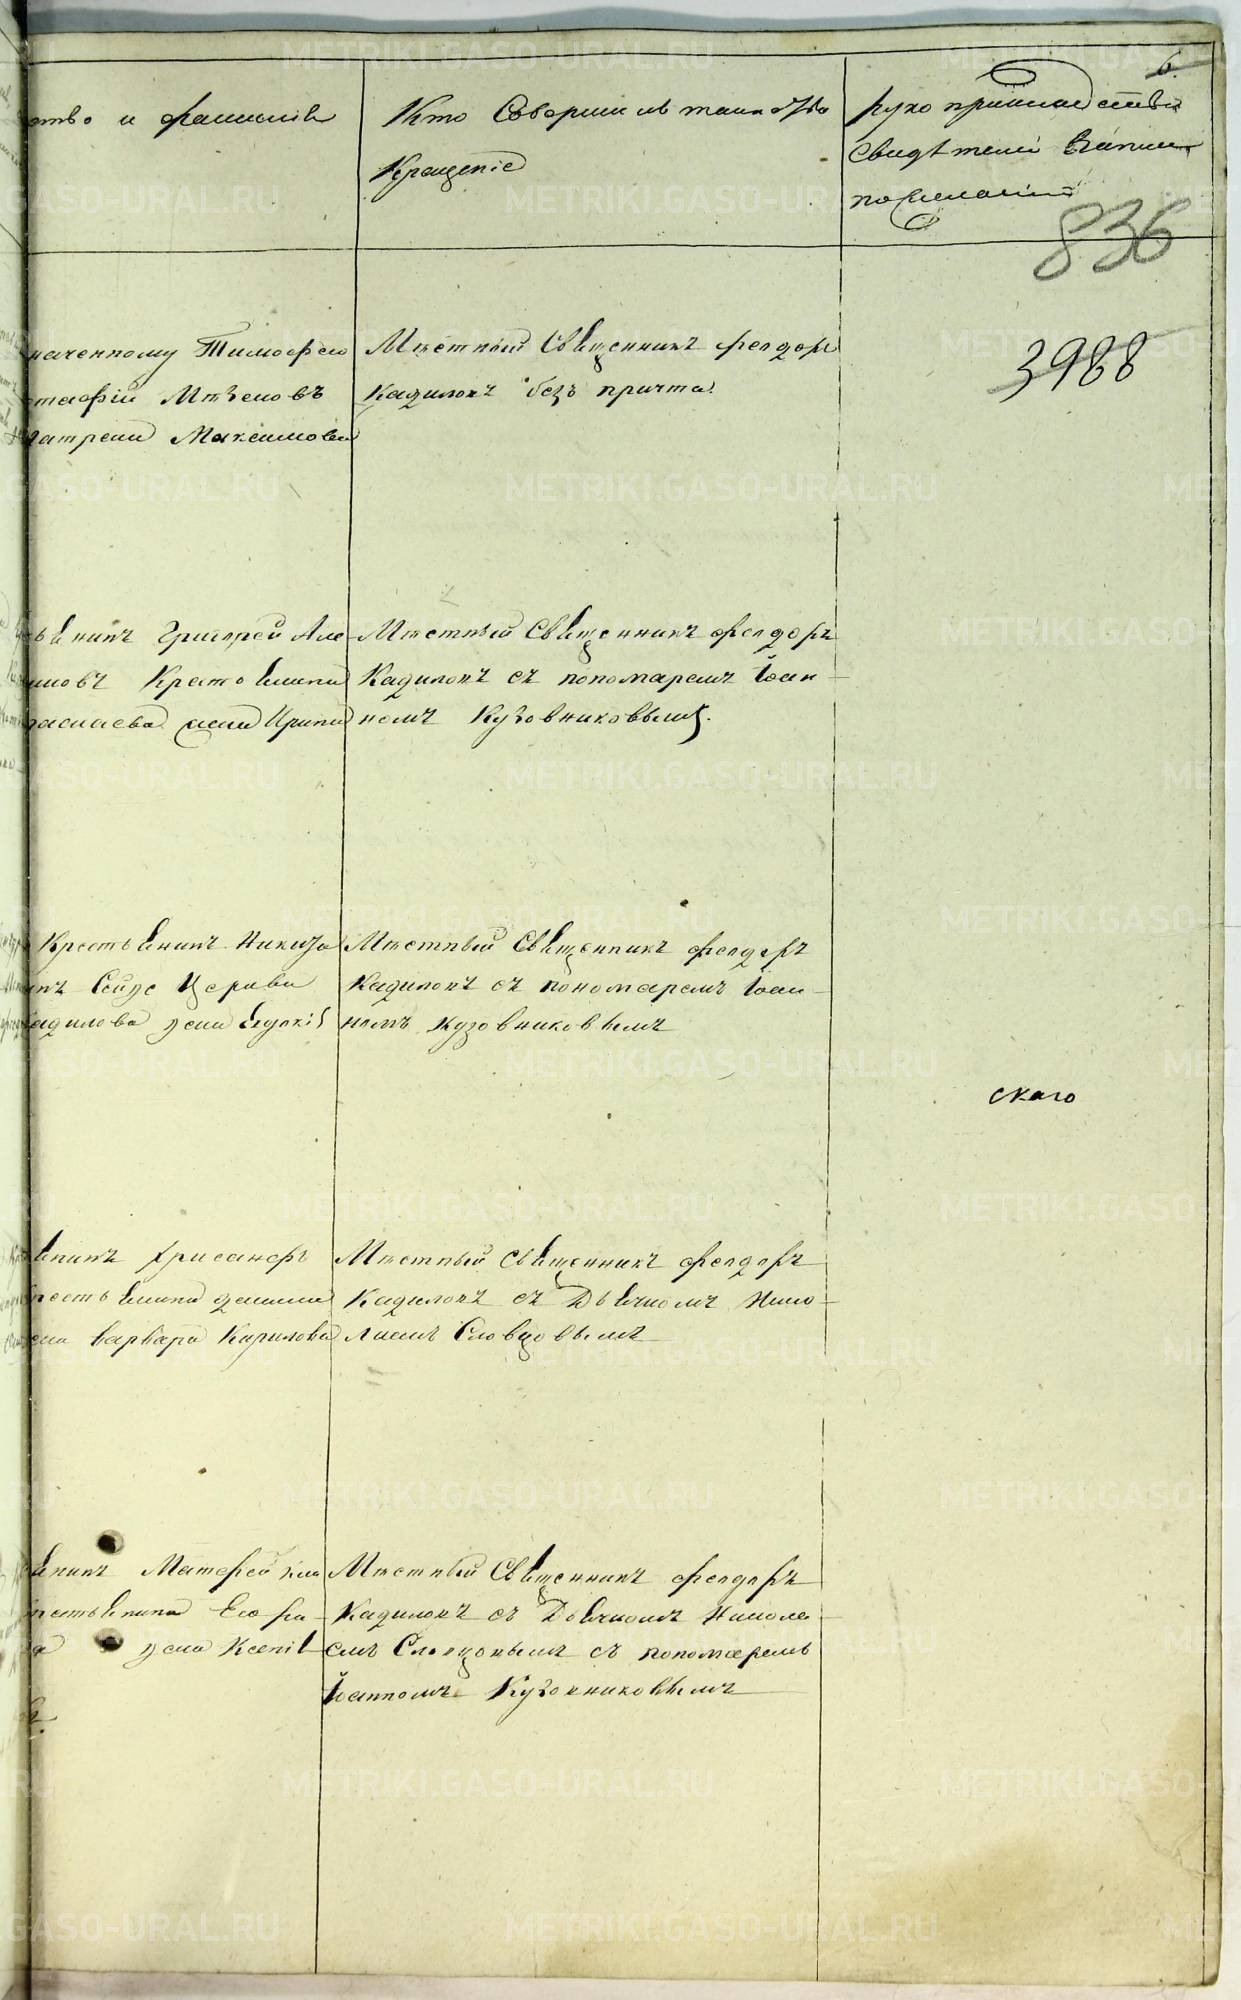 6.
ство и фамилія
Кто Совершилъ таинство
Крещеніе
руко прикладство
Свидѣтелей Записи
по желанію
836
3988
наченному Тимофею
стафій Мѣзеновъ
Матрена Максимова
Мѣстный Священникъ Феодоръ
Кадиловъ безъ причта.
ьянинъ Григорей Але-
Крестьянина
ва жена Ирина
Мѣстный Священникъ Феодоръ
Кадиловъ съ пономаремъ Іоан-
номъ Кузовниковымъ.
Крестьянинъ Никита
нъ Сейже Церкви
Кадилова жена Евдокія
Мѣстный Священникъ Феодоръ
Кадиловъ съ пономаремъ Іоан-
номъ Кузовниковымъ
скаго
янинъ Хрисанфъ
рестьянина
жена Варвара Кирилова
Мѣстный Священникъ Феодоръ
Кадиловъ съ Дьячкомъ Нико-
лаемъ Словцовымъ
янинъ Матфей
рестьянина
жена Ксенія
Мѣстный Священникъ Феодоръ
Кадиловъ съ Дьячкомъ Никола-
емъ Словцовымъ съ пономаремъ
Іоанномъ Кузовниковымъ
METRIKI.GASO-URAL.RU